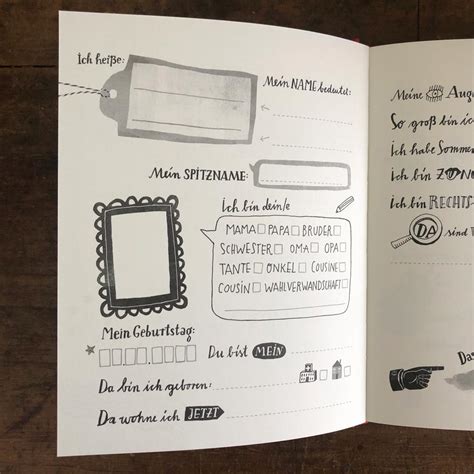 Ich heiße:
Mein NAME bedeutet:
Mein SPITZNAME:
Ich bin dein/e
MAMA PAPA BRUDER
SCHWESTER OMA OPA
TANTE ONKEL COUSINE
COUSIN WAHLVERWANDSCHAFT
Mein Geburtstag:
Du bist MEIN
Da bin ich geboren:
Da wohne ich JETZT
Meine Auge
So groß bin ic
Ich habe Sommer
Ich bin
Ich bin RECHTS-
DA sind
Da